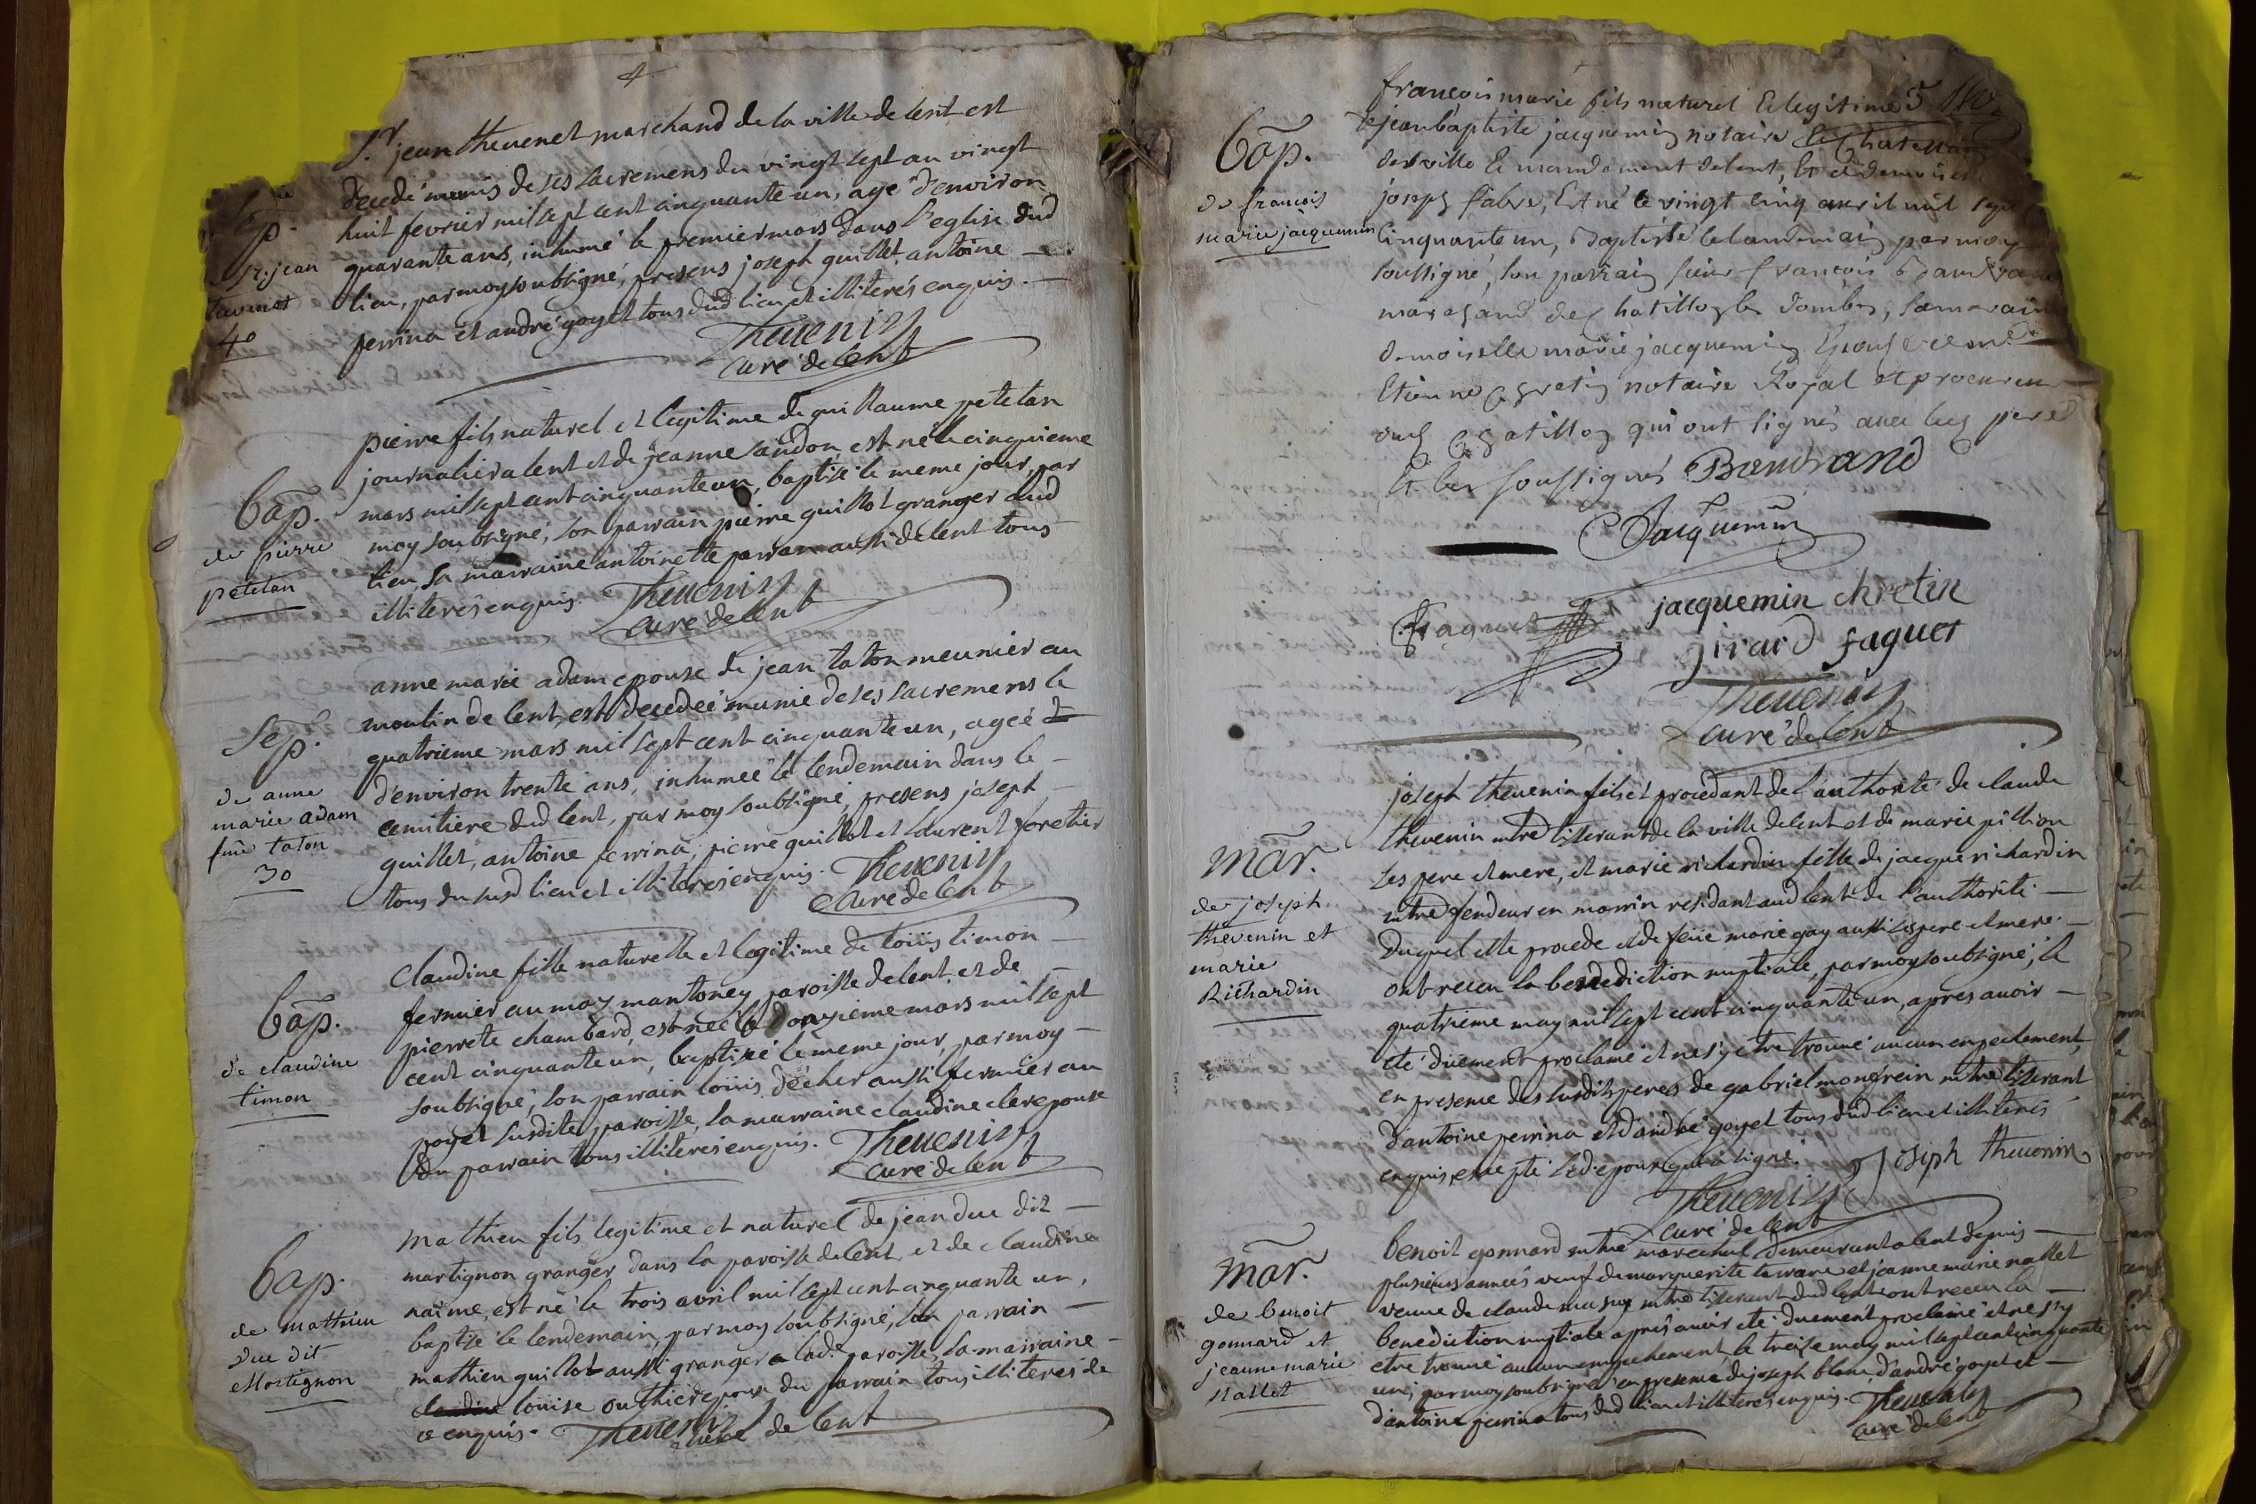 4
Sr. jean thevenet marchand de la ville de lent est
decedé munis de ses sacremens du vingt sept au vingt
huit fevrier mil sept cent cinquante un, agé d'environ
quarante ans, inhumé le premier mars dans l'eglise dud
lieu, par moy soubsigné, presens joseph guillet, antoine
perrina et andré goyet tous dud lieu et illiterés enquis.
Thevenin
curé de lent
Sep.
Sr. jean
40
Bap.
de pierre
petetan
pierre fils naturel et legitime de guillaume petetan
journalier a lent et de jeanne sandon est né le cinquieme
mars mil sept cent cinquante un, baptisé le meme jour, par
moy soubsigné, son parrain pierre guillot granger dud
lieu, sa marraine antoinette parran aussi de lent tous
illiterés enquis.
Thevenin
curé de lent
Sep.
de anne
marie adam
fme taton
30
anne marie adam epouse de jean taton meunier au
moulin de lent, est decedeé munie de ses sacremens le
quatrieme mars mil sept cent cinquante un, ageé
d'environ trente ans, inhumeé le lendemain dans le
cemitiere dud lent, par moy soubsigné, presens joseph
guillet, antoine perrina, pierre guillot et laurent foretier
tous du susd lieu et illiterés enquis.
Thevenin
curé de lent
Bap.
de claudine
timon
Claudine fille naturelle et legitime de loüis timon
fermier au may mantoney paroisse de lent, et de
pierrete chambard, est neé le douzieme mars mil sept
cent cinquante un, baptisé le meme jour, par moy
soubsigné, son parrain loüis décher aussi fermier au
poyet susdite paroisse, sa marraine claudine clerc epouse
du parrain tous illiterés enquis.
Thevenin
curé de lent
Bap.
de mathieu
duc dit
Martignon
Mathieu fils legitime et naturel de jean duc dit
martignon granger dans la paroisse de lent, et de claudine
naime, est né le trois avril mil sept cent cinquante un,
baptisé le lendemain, par moy soubsigné, son parrain
mathieu guillot aussi granger a lad. paroisse, sa marraine
claudine loüise outhier epouse du parrain tous illiteres de
ce enquis.
Thevenin
curé de lent
Bap.
de francois
marie jacquemin
françois marie fils naturel & legitime 5
de jean baptiste jacquemin notaire & Chatellain
des ville & mandement de lent, & de demoiselle
joseph fabre, Est né le vingt cinq avril mil sept
Cinquante un, Baptisé le landemain par moy
soussigné, son parrain sieur françois Bandrand
marchand de Chatillon les Dombes, sa marraine
demoiselle marie jacquemin de me
Etienne Chretin notaire Royal et procureur
Chatillon qui ont signés avec les pere
& les soussignés
Bandrand
Jacquemin
jacquemin chretin
faguet
girard faguet
Thevenin
curé de lent
Mar.
de joseph
thevenin et
marie
Richardin
joseph thevenin fils et procedant de l'authorité de claude
thevenin mtre tisserant de la ville de lent et de marie pillion
ses pere et mere, et marie richardin fille de jacque richardin
mtre fendeur en marrin residant aud lent de l'authorité
duquel elle procede et de feüe marie gay aussi ses pere et mere
ont receu la benediction nuptiale, par moy soubsigné, le
quatrieme may mil sept cent cinquante un, apres avoir
été duement proclamé et ne s'y etre trouvé aucun enpechement,
en presence des susdits peres de gabriel monfrein mtre tisserant
d'antoine perrina et d'andré goyet tous dud lieu et illiterés
enquis, excepté led epoux qui a signé.
Joseph thevenin
Thevenin
curé de lent
Mar.
de benoit
gonnard et
jeanne marie
Nallet
benoit gonnard mtre marechal demeurant a lent depuis
plusieurs anneés veuf de marguerite tavare et jeanne marie nallet
veuve de claude musy mtre tisserant dud lent ont receu la
benediction nuptiale apres avoir été duement proclamé et ne s'y
etre trouvé aucun enpechement le treize may mil sept cent cinquante
un, par moy soubsigné en presence de joseph blanc, d'andré goyet et
d'antoine perrina tous dud lieu et illiterés enquis.
Thevenin
curé de lent